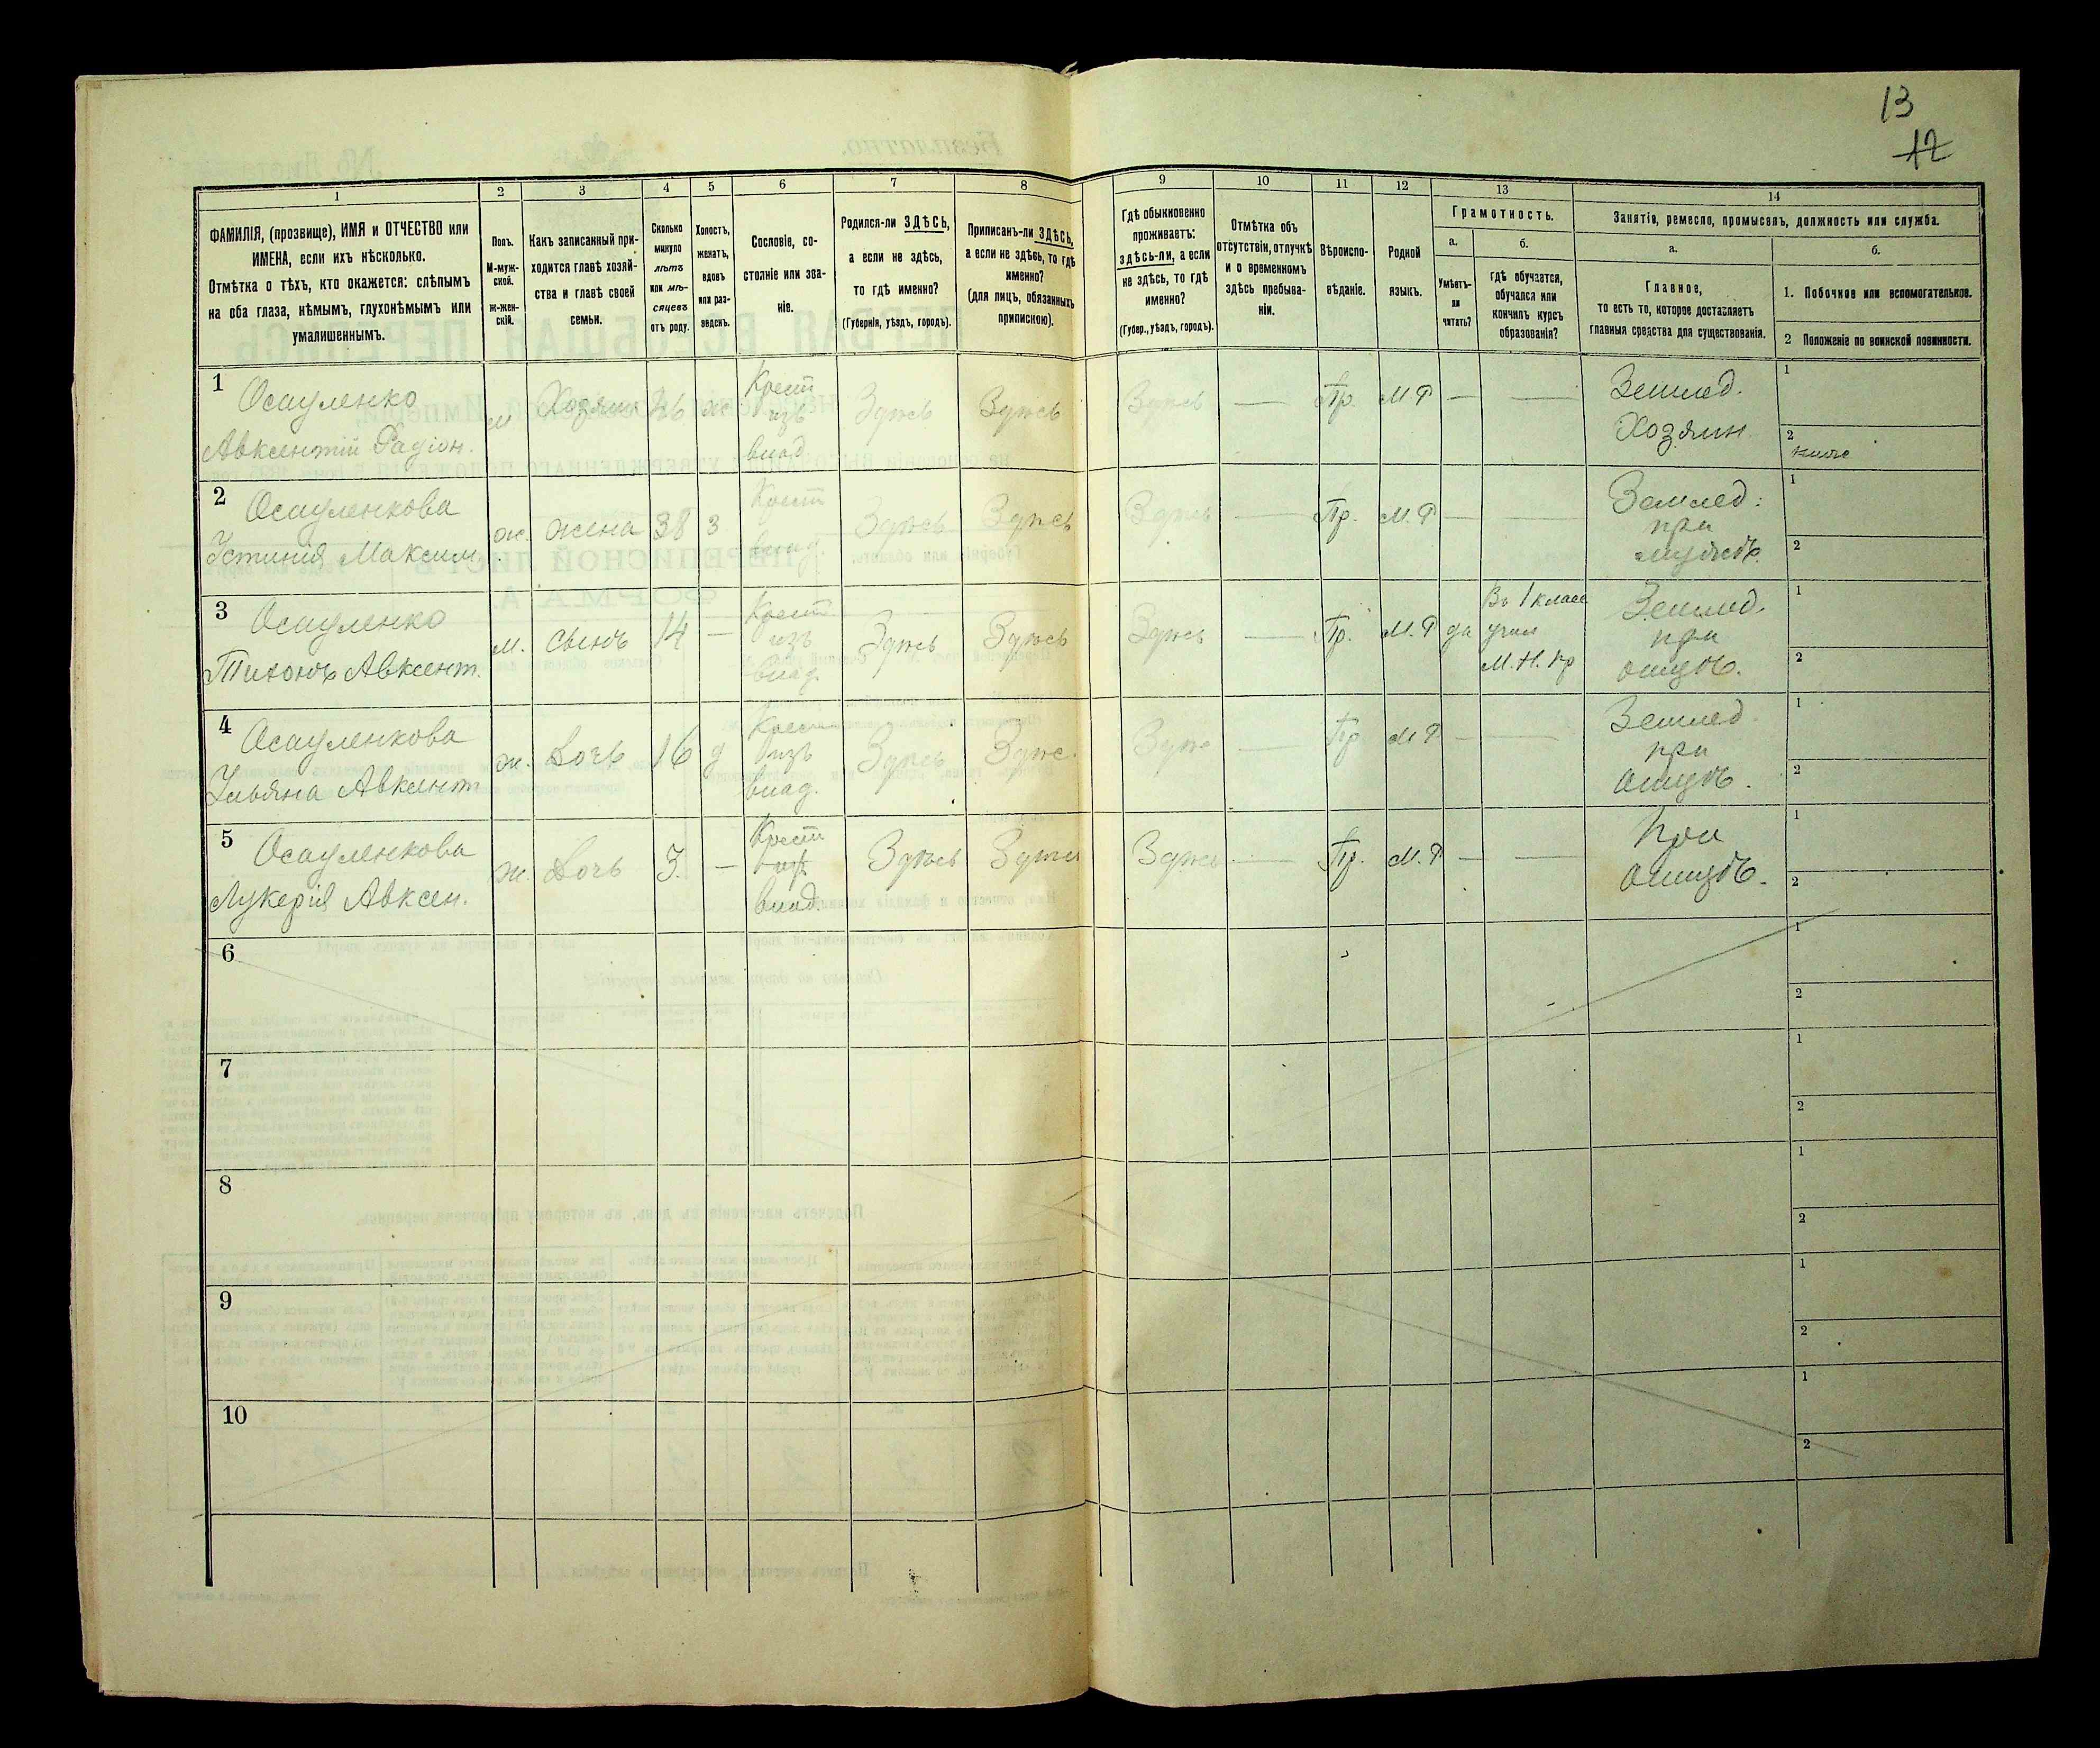 13
12
1
2
3
4
5
6
7
8
9
10
11
12
13
14
ФАМИЛІЯ, (прозвище), ИМЯ и ОТЧЕСТВО или
ИМЕНА, если ихъ нѣсколько.
Отмѣтка о тѣхъ, кто окажется: слѣпымъ
на оба глаза, нѣмымъ, глухонѣмымъ или
умалишеннымъ.
Полъ.
М-муж-
ской.
Ж-жен-
скій.
Какъ записанный при-
ходится главѣ хозяй-
ства и главѣ своей
семьи.
Сколько
минуло
лѣтъ
или мѣ-
сяцевъ
отъ роду.
Холостъ,
женатъ,
вдовъ
или раз-
веденъ.
Сословіе, со-
стояніе или зва-
ніе.
Родился-ли ЗДѢСЬ,
а если не здѣсь,
то гдѣ именно?
(Губернія, уѣздъ, городъ).
Приписанъ-ли ЗДѢСЬ,
а если не здѣсь, то гдѣ
именно?
(для лицъ, обязанныхъ
припискою).
Гдѣ обыкновенно
проживаетъ:
здѣсь-ли, а если
не здѣсь, то гдѣ
именно?
(Губер., уѣздъ, городъ).
Отмѣтка объ
отсутствіи, отлучкѣ
и о временномъ
здѣсь пребыва-
ніи.
Вѣроиспо-
вѣданіе.
Родной
языкъ.
Грамотность.
а.
б.
Умѣетъ-
ли
читать?
гдѣ обучается,
обучался или
кончилъ курсъ
образованія?
Занятіе, ремесло, промыселъ, должность или служба.
а.
б.
Главное,
то есть то, которое доставляетъ
главныя средства для существованія.
1. Побочное или вспомогательное.
2 Положеніе по воинской повинности.
1 Осауленко
Авксентій Радіон.
м Хозяин ж
Крест
изъ
влад
Здѣсь Здѣсь Здѣсь — Пр. М.Р — —
Землед.
Хозяин
1
2
2 Осауленкова
Устинія Максим
ж. жена 38 з
Крест
влад.
Здѣсь Здѣсь Здѣсь — Пр. М.Р — —
Землед.
при
мужѣ.
1
2
3 Осауленко
Тихонъ Авксент.
м. сынъ 14 —
Крест
изъ
влад.
Здѣсь Здѣсь Здѣсь — Пр. М.Р да
Въ 1 класс
учил
М. Н. пр
Землед.
при
отцѣ.
1
2
4 Осауленкова
Ульяна Авксент
ж. Дочь 16 д
Крест
изъ
влад.
Здѣсь Здѣс. Здѣс — Пр М.Р — —
Землед
при
отцѣ.
1
2
5 Осауленкова
Лукерія Авксен.
ж. Дочь 3. —
Крест
изъ
влад.
Здѣсь Здѣсь Здѣсь — Пр. М.Р — —
При
отцѣ.
1
2
6
1
2
7
1
2
8
1
2
9
1
2
10
1
2